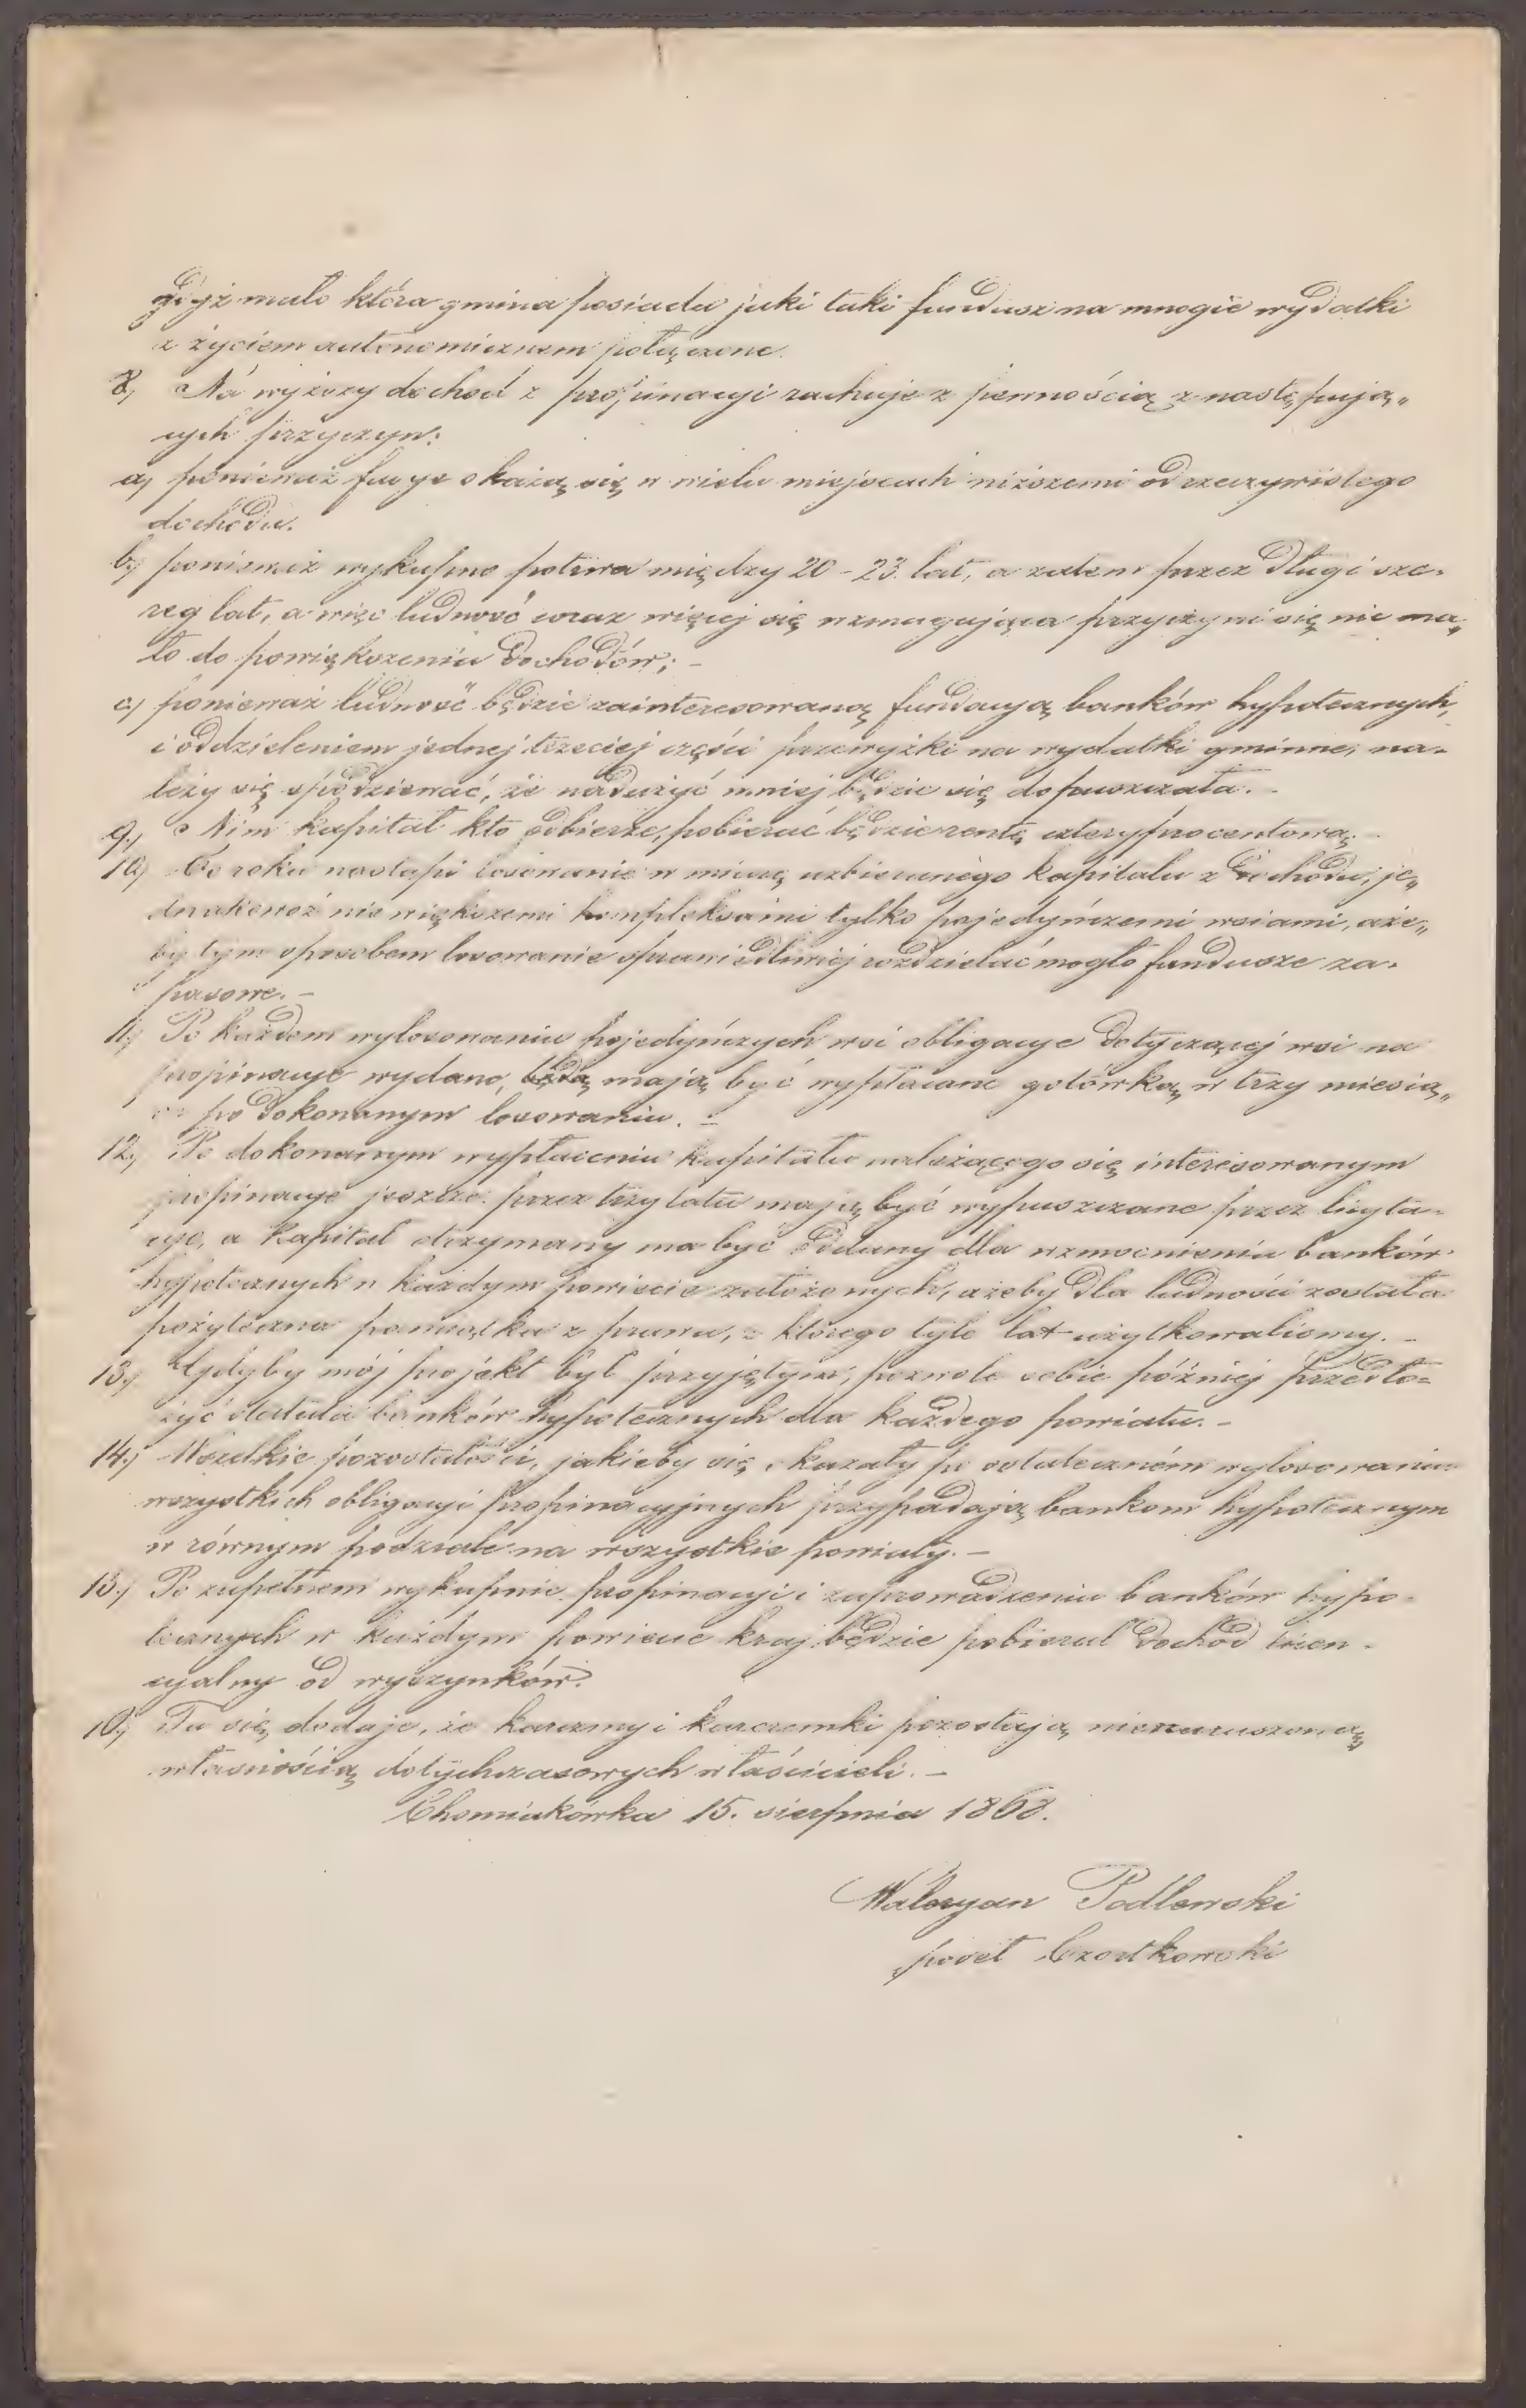 gdyż mało która gmina posiada jaki taki fundusz na mnogie wydatki
z życiem autonomicznem połączone.
8.) Na wyższy dochód z propinacyi rachuję z pewnością z następują„
cych przyczyn:
a) ponieważ fasye okażą się w wielu miejscach niższemi od rzeczywistego
dochodu.
b.) ponieważ wykupno potrwa między 20 - 23. lat, a zatem przez długi sze-
reg lat, a więc ludność coraz więcej się wzmagająca przyczyni się nie ma„
ło do powiększenia dochodów; -
c.) ponieważ ludność będzie zainteresowaną fundacyą banków hypotecznych,
i oddzieleniem jednej trzeciej części przewyżki na wydatki gminne, na-
leży się spodziewać, że nadużyć mniej będzie się dopuszczała. -
9.) Nim kapitał kto odbierze, pobierać będzie rentę czteryprocentową. -
10.) Co roku nastąpi losowanie w miarę uzbieranego kapitału z dochodu, je„
dnakowoż nie większemi kompleksami tylko pojedyńczemi wsiami, aże„
by tym sposobem losowanie sprawiedliwiej rozdzielać mogło fundusze za-
pasowe. -
11.) Po każdem wylosowaniu pojedyńczych wsi obligacye dotyczącej wsi na
propinacye wydane, będą mają być wypłacane gotówką w trzy miesią„
ce po dokonanym losowaniu. -
12.) Po dokonanym wypłaceniu kapitału należącego się interesowanym
propinacye jeszcze przez trzy lata mają być wypuszczane przez licyta-
cye, a kapitał otrzymany ma być oddany dla wzmocnienia banków
hypotecznych w każdym powiecie założonych, ażeby dla ludności została
pożyteczna pamiątka z prawa, z którego tyle lat użytkowaliśmy. -
13.) Gdyby mój projekt był przyjętym, pozwolę sobie później przedło=
żyć statuta banków hypotecznych dla każdego powiatu. -
14.) Wszelkie pozostałości, jakieby się okazały po ostateczném wylosowaniu
wszystkich obligacyi propinacyjnych przypadają bankom hypotecznym
w równym podziale na wszystkie powiaty. -
15.) Po zupełnem wykupnie propinacyi i zaprowadzeniu banków hypo-
tecznych w każdym powiecie kraj będzie pobierał dochód licen-
cyalny od wyszynków.
16.) Tu się dodaje, że karczmy i karczemki pozostają nienaruszoną„
własnością dotychczasowych właścicieli. -
Chomiakówka 15. sierpnia 1868.
Waleryan Podlewski
poseł Czortkowski